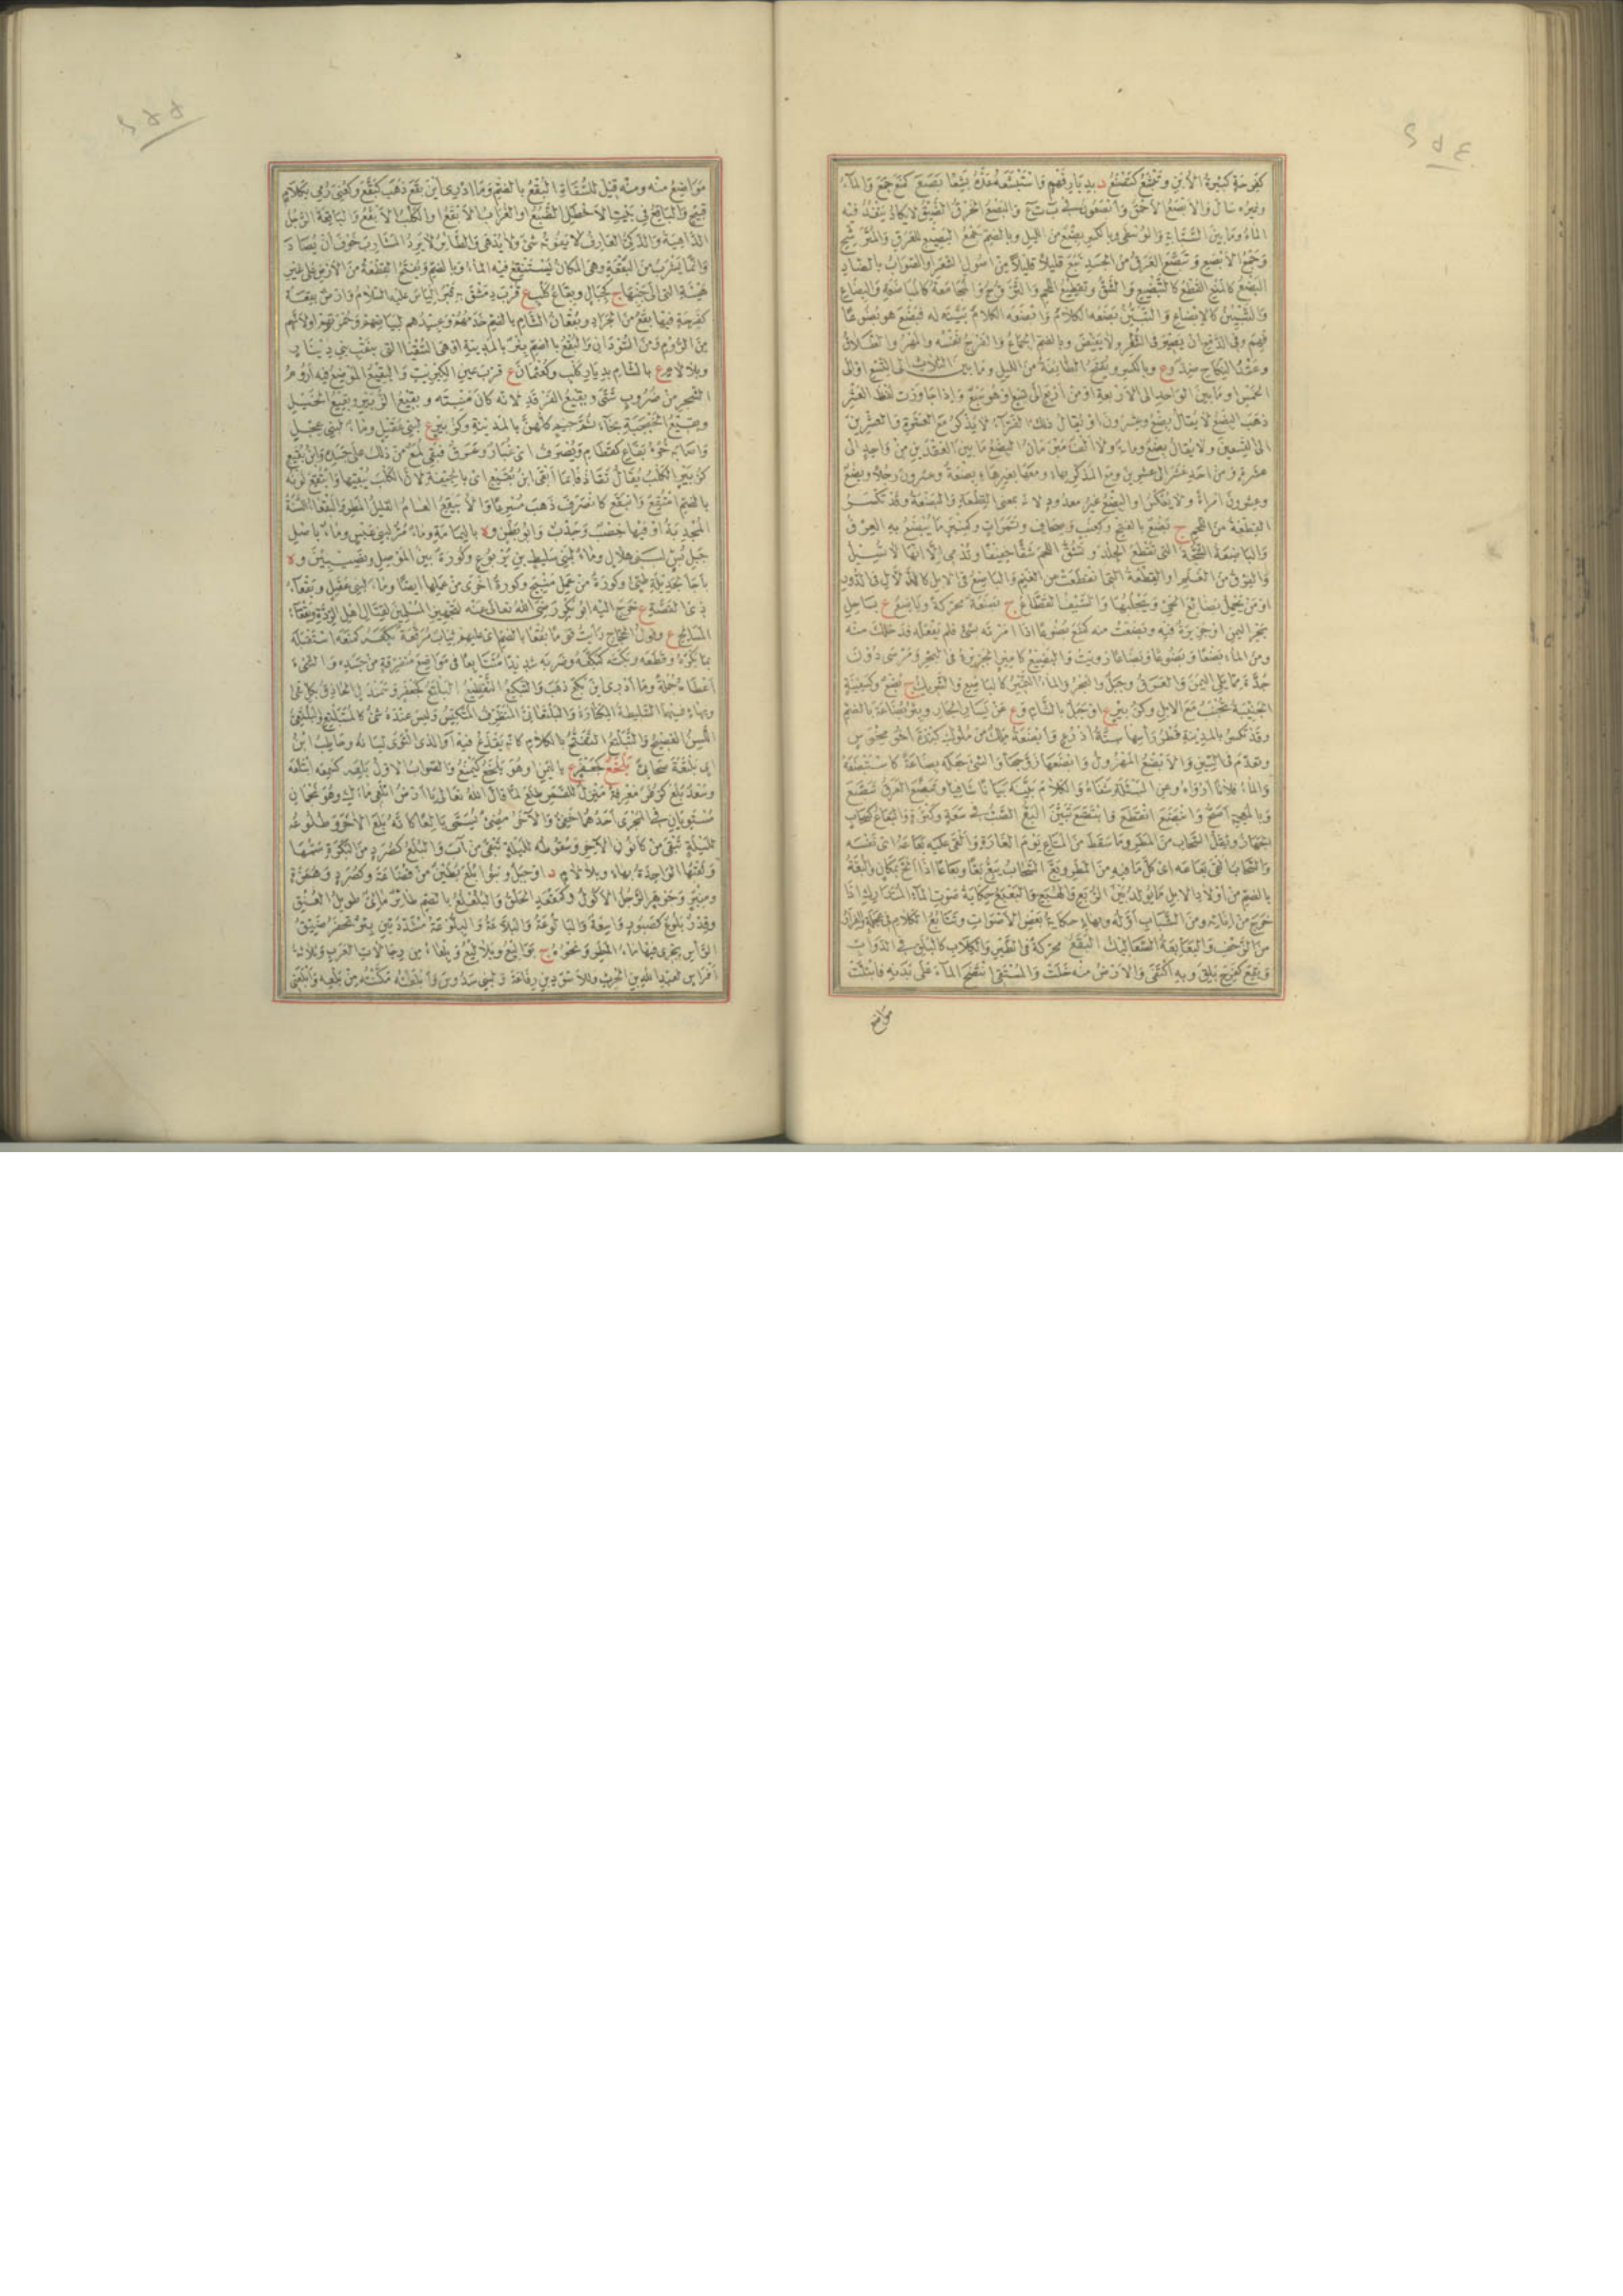 كفرحة كثيرة الابن وتمتع كتصنع د بديار فهم
وغيره سال والابصع الاحمق وابصعون في ب ت ع والبصع الخرق الضيق لا يكاد ينفذ فيه
الماء وما بين السبابة والوسطى وبالكسر بضع من الليل وبالضم جمع البصيع للعرق المترشح
وجمع الابصع وتبصع العرق من الجسد نبع قليلا قليلا من اصول الشعر او الصواب بالضاد
البضع كالمنع القطع كالتبضيع والشق وتقطيع اللحم والتزوج والمجامعة كالمباضعة والبضاع
والتبيين كالابضاع والتبين بضعه الكلام وابضعه الكلام بينه له فبضع هو بضوعا
فهم وفي الدمع ان يصير في الشفر ولا يفيض وبالضم الجماع او الفرج نفسه والمهر والطلاق
وعقد النكاح ضد وع وبالكسر ويفتح الطائفة من الليل وما بين الثلاث الى التسع او الى
الخمس او ما بين الواحد الى الاربعة او من اربع الى تسع او هو سبع واذا جاوزت لفظ العشر
ذهب البضع لا يقال بضع وعشرون او يقال ذلك الفراء لا يذكر مع العشرة والعشرين
الى التسعين ولا يقال بضع ومائة ولا الف مبرمان البضع ما بين العقدين من واحد الى
عشرة ومن احد عشر الى عشرين ومع المذكر بهاء ومعها بغير هاء بضعة وعشرون رجلا وبضع
وعشرون امراة ولا يعكس او البضع غير معدود لانه بمعنى القطعة والبضعة وقد تكسر
القطعة من اللحم ج بضع بالفتح وكعنب وصحاف وتمرات وكمنبر ما يبضع به العرق
والباضعة الشجة التي تقطع الجلد وتشق اللحم شقا خفيفا وتدمي الا انها لا تسيل
والفرق من الغنم او القطعة التي انقطعت من الغنم والباضع في الابل كالدلال في الدور
او من يحمل بضائع الحي ويجلبها والسيف القطاع ج بضعة محركة وباضع ع بساحل
بحر اليمن او جزيرة فيه وبضعت منه كمنع بضوعا اذا امرته بشئ فلم يفعله فدخلك منه
ومن الماء بضعا وبضوعا وبضاعا رويت والبضيع كامير الجزيرة في البحر ومرسى دون
جدة مما يلي اليمن والعرق وجبل والبحر والماء النمير كالباضع والشريك ج بضع وكسفينة
الجنيبة تجنب مع الابل وكزبير ع او جبل بالشام وع عن يسار الجار وبئر بضاعة بالضم
وقد تكسر بالمدينة قطر راسها ستة اذرع وابضعة ملك من ملوك كندة اخو مخوس
وتقدم في السين والابضع المهزول وابضعها زوجها والشئ جعله بضاعة كاستبضعه
والماء فلانا ارواه وعن المسئلة شفاه والكلام بينه بيانا شافيا وتبضع العرق تبصع
وبالمعجمة اصح وانبضع انقطع وابتضع تبين البع الصب في سعة وكثرة والبعاع كسحاب
الجهاز وثقل السحاب من المطر وما سقط من المتاع يوم الغارة والقى عليه بعاعه اى نفسه
والسحاب القى بعاعه اى كل ما فيه من المطر وبع السحاب يبع بعا وبعاعا اذا الح بمكان والبعة
بالضم من اولاد الابل ما يولد بين الربع والهبع والبعبع حكاية صوت الماء المتدارك اذا
خرج من انائه ومن الشباب اوله وبهاء حكاية بعض الاصوات وتتابع الكلام في عجلة والفرار
من الزحف والبعابعة الصعاليك البقع محركة في الطير والكلاب كالبلق في الدواب
وبقع كفرح بلق وبه اكتفى والارض منه خلت والمستقي انتضح الماء على بدنه فابتلت
مواضع
مواضع منه ومنه قيل للسقاة البقع بالضم وما ادري اين بقع ذهب كبقع وكعني رمي بكلام
قبيح والباقع في بيت الاخطل الضبع او الغراب الابقع او الكلب الابقع والباقعة الرجل
الداهية والذكي العارف لا يفوته شئ ولا يدهى والطائر لا يرد المشارب خوف ان يصاد
وانما يشرب من البقعة وهي المكان يستنقع فيه الماء وبالضم ويفتح القطعة من الارض على غير
هيئة التي الى جنبها ج كجبال وبقاع كلب ع قرب دمشق به قبر الياس عليه السلام وارض بقعة
كفرحة فيها بقع من الجراد وبقعان الشام بالضم خدمهم وعبيدهم لبياضهم وحمرتهم او لانهم
من الروم ومن السودان والبقع بالضم بئر بالمدينة او هي السقيا التي بنقب بني دينار
وبلا لام ع بالشام بديار كلب وكعثمان ع قرب عين الكبريت والبقيع الموضع فيه اروم
الشجر من ضروب شتى وبقيع الغرقد لانه كان منبته وبقيع الزبير وبقيع الخيل
وبقيع الخبجبة بخاء ثم جيم كلهن بالمدينة وكزبير ع لبني عقيل وماء لبني عجل
واصابه خرء بقاع كقطام ويصرف اى غبار وعرق فبقي لمع من ذلك على جسده وابن بقيع
كزبير الكلب يقال تقاذفا بما ابقى ابن بقيع اى بالجيفة لان الكلب يبقيها وابتقع لونه
بالضم امتقع وانبقع كانصرف ذهب مسرعا والابيقع العام القليل المطر والبقعاء السنة
المجدبة او فيها خصب وجدب وابو بطن وة باليمامة وماء مر لبني عبس وماء باصل
جبل بس لبني هلال وماء لبني سليط بن يربوع وكورة بين الموصل ونصيبين وة
باجا لجديلة طيئ وكورة من عمل منبج وكورة اخرى من عملها ايضا وماء لبني عقيل وبقعاء
ذي القصة ع خرج اليه ابو بكر رضى الله تعالى عنه لتجهيز المسلمين لقتال اهل الردة وبقعاء
المسالح ع وقول الحجاج رايت قوما بقعا بالضم اى عليهم ثياب مرقعة بكعه كمنعه استقبله
بما يكره وقطعه وبكته كبكعه وضربه شديدا متتابعا في مواضع متفرقة من جسده والشئ
اعطاه جملة وما ادري اين بكع ذهب والتبكيع التقطيع
وبهاء فيهما السليطة المكثارة والبلتعاني المتظرف المتكيس وليس عنده شئ كالمتبلتع والبلتعي
اللسن الفصيح والتبلتع التفتح بالكلام كانه يقذع فيه او الذي الثوى لسانه وحاطب ابن
ابي بلتعة صحابي بلخع كجعفر ع باليمن او هو يلخع كيمنع والصواب الاول بلعه كسمعه ابتلعه
وسعد بلع كزفر معرفة منزل للقمر طلع لما قال الله تعالى يا ارض ابلعي ماءك وهو نجمان
مستويان في المجرى احدهما خفي والآخر مضئ يسمى بالعا كانه بلع الآخر وطلوعه
لليلة تبقى من كانون الآخر وسقوطه لليلة تبقى من آب والبلع كصرد من البكرة سمها
وثقبها الواحدة بهاء وبلا لام د او جبل وبنو بلع بطين من قضاعة وكصرد وهمزة
ومنبر وجوهر الرجل الاكول وكمقعد الحلق والبلعلع بالضم طائر مائي طويل العنق
وقدر بلوع كصبور واسعة والبالوعة والبلاعة والبلوعة مشددتين بئر تحفر ضيق
الراس يجري فيها ماء المطر ونحوه ج بواليع وبلاليع وبلعاء من رجالات العرب وثلاثة
افراس لعبد الله بن الحرث وللاسود بن رفاعة ولبني سدوس وابلعته مكنته من بلعه وابلعني